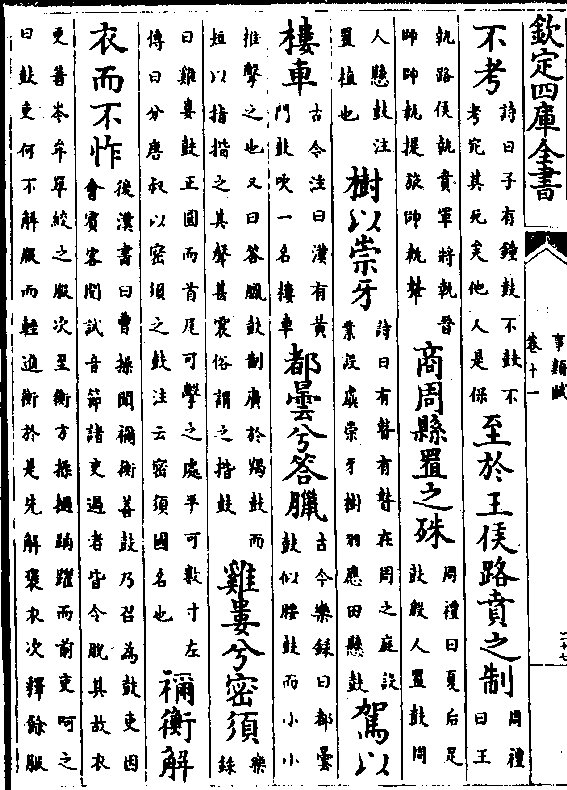 欽定四庫全書
事類賦
卷十一
二十七
不考
詩曰子有鐘鼓不鼓不
考宛其死矣他人是保
至於王侯路賁之制
周禮
曰王
執路侯執賁軍將執晉
師帥執提旅帥執鼙
商周縣置之殊
周禮曰夏后足
鼓殷人置鼓周
人懸鼓注
置植也
樹以崇牙
詩曰有瞽有瞽在周之庭設
業設虡崇牙樹羽應田懸鼓
駕以
樓車
古今注曰漢有黄
門鼓吹一名樓車
都曇兮答臘
古今樂録曰都曇
鼓似腰鼓而小小
推擊之也又曰答臘鼓制廣於羯鼓而
短以指揩之其聲甚震俗謂之揩鼓
雞婁兮密須
樂
録
曰雞婁鼓正圓而首尾可擊之處平可數寸左
傳曰分唐叔以密須之鼓注云密須國名也
禰衡解
衣而不怍
後漢書曰曹操聞禰衡善鼓乃召為鼓吏因
會賓客閲試音節諸吏過者皆令脱其故衣
更著岑牟單絞之服次至衡方操撾蹋躍而前吏呵之
曰鼓吏何不解服而輕進衡於是先解褻衣次釋餘服